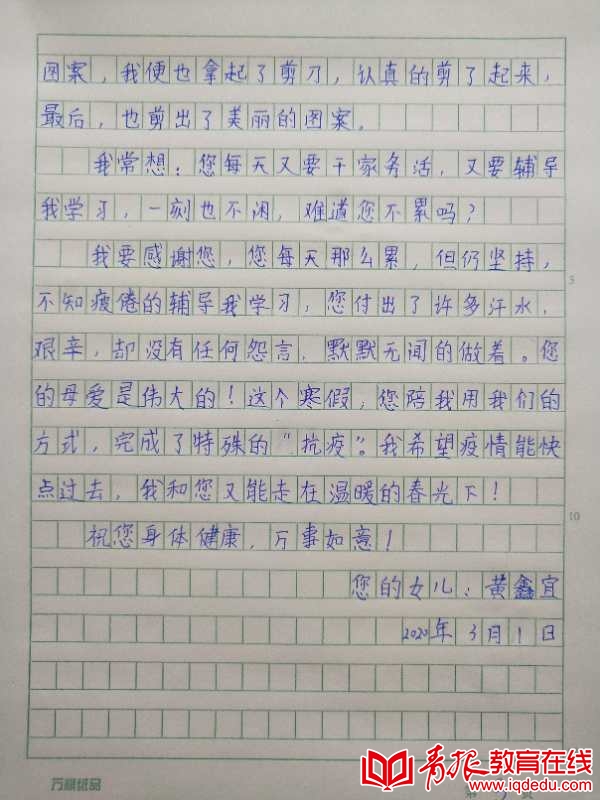 图案，我便也拿起了剪刀，认真的剪了起来，
最后，也剪出了美丽的图案。
我常想：您每天又要干家务活，又要辅导
我学习，一刻也不闲，难道您不累吗？
我要感谢您，您每天那么累，但仍坚持，
5
不知疲倦的辅导我学习，您付出了许多汗水、
艰辛，却没有任何怨言，默默无闻的做着。您
的母爱是伟大的！这个寒假，您陪我用我们的
方式，完成了特殊的“抗疫”。我希望疫情能快
点过去，我和您又能走在温暖的春光下！
10
祝您身体健康，万事如意！
您的女儿：黄鑫宜
2020年3月1日
万顺纸品
第
青报教育在线
www.iqdedu.com